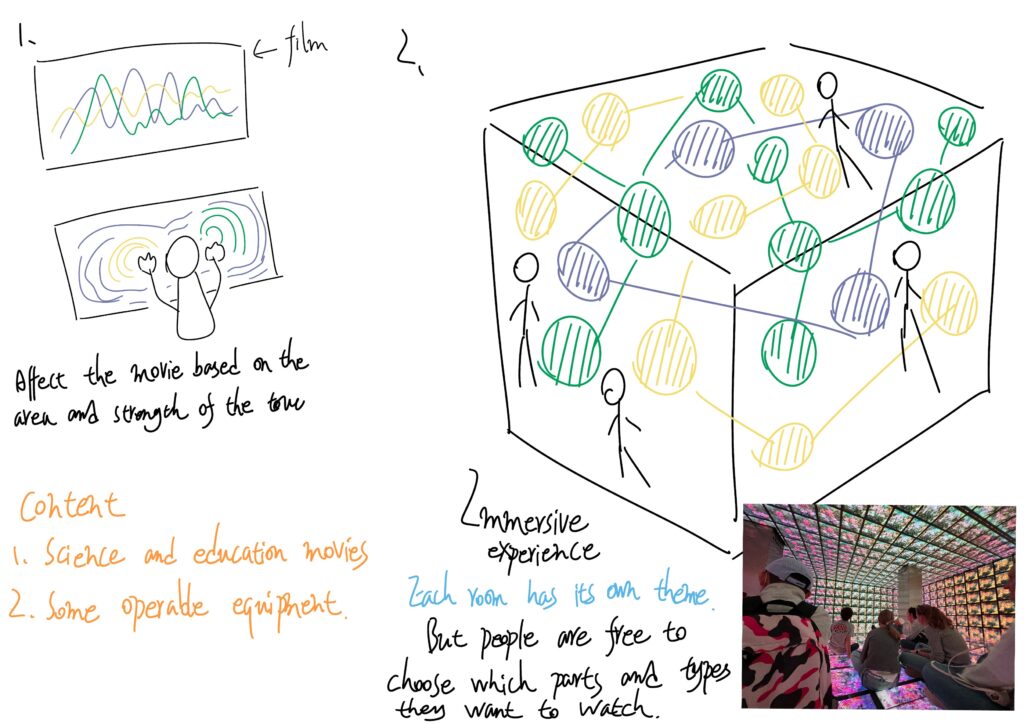 1.
← film
Affect the movie based on the
area and strength of the
Content
1. Science and education movies
2. Some operable equipment.
2.
Immersive
experience
Each room has its own theme.
But people are free to
choose which parts and types
they want to watch.